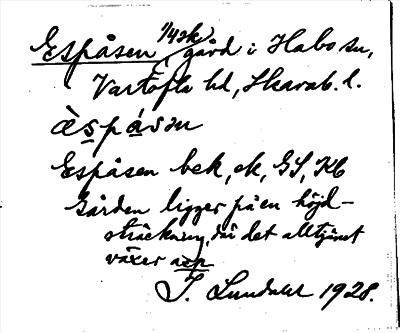 Espåsen, 1/4 sk gård i Habo sn,
Vartofta hd, Skarab. l.
èspåsən
Espåsen bek, ek, GS, Kb
Gården ligger på en höjd-
sträckning, där det alltjämt
växer asp
J. Lundahl 1928.